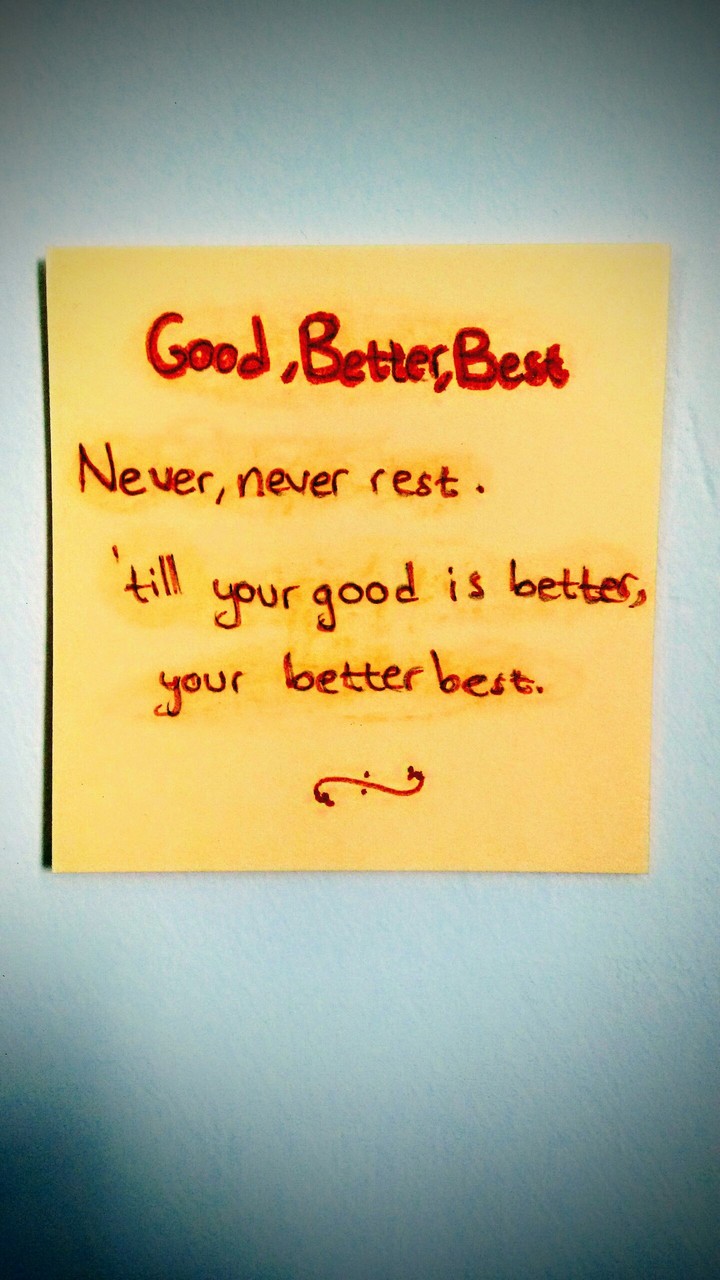 Good, Better, Best
Never, never rest.
'till your good is better,
your better best.